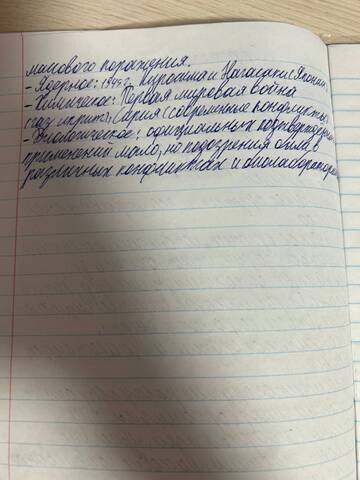 массового поражения.
- Ядерное: 1945 г. Хиросима и Нагасаки (Япония)
- Химическое: Первая мировая война
газ иприт, Сирия (современные конфликты)
- Биологическое: официальных подтверждений
применений мало, но подозрения были в
различных конфликтах и биолабораториях